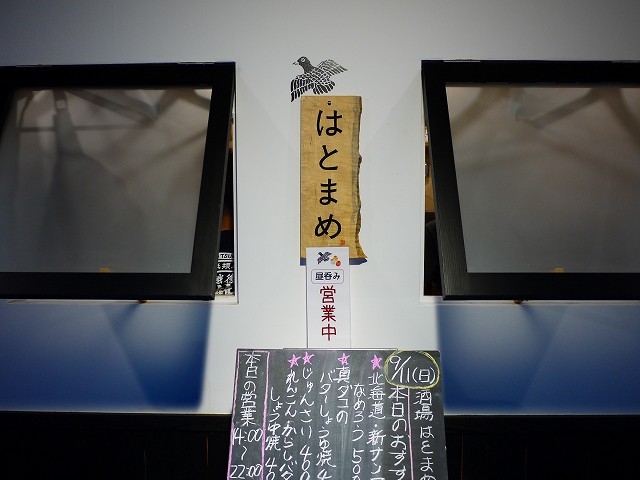 はとまめ
昼呑み
営業中
9/11(日)
酒場はとまめ
本日のおすす
★北海道・新サンマ
なめろう 50
★真ダコの
バターしょうゆ焼 4
★じゅんさい 400
★れんこんからしバタ
しょうゆ焼 40
本日の営業
14:00
〜
22:00